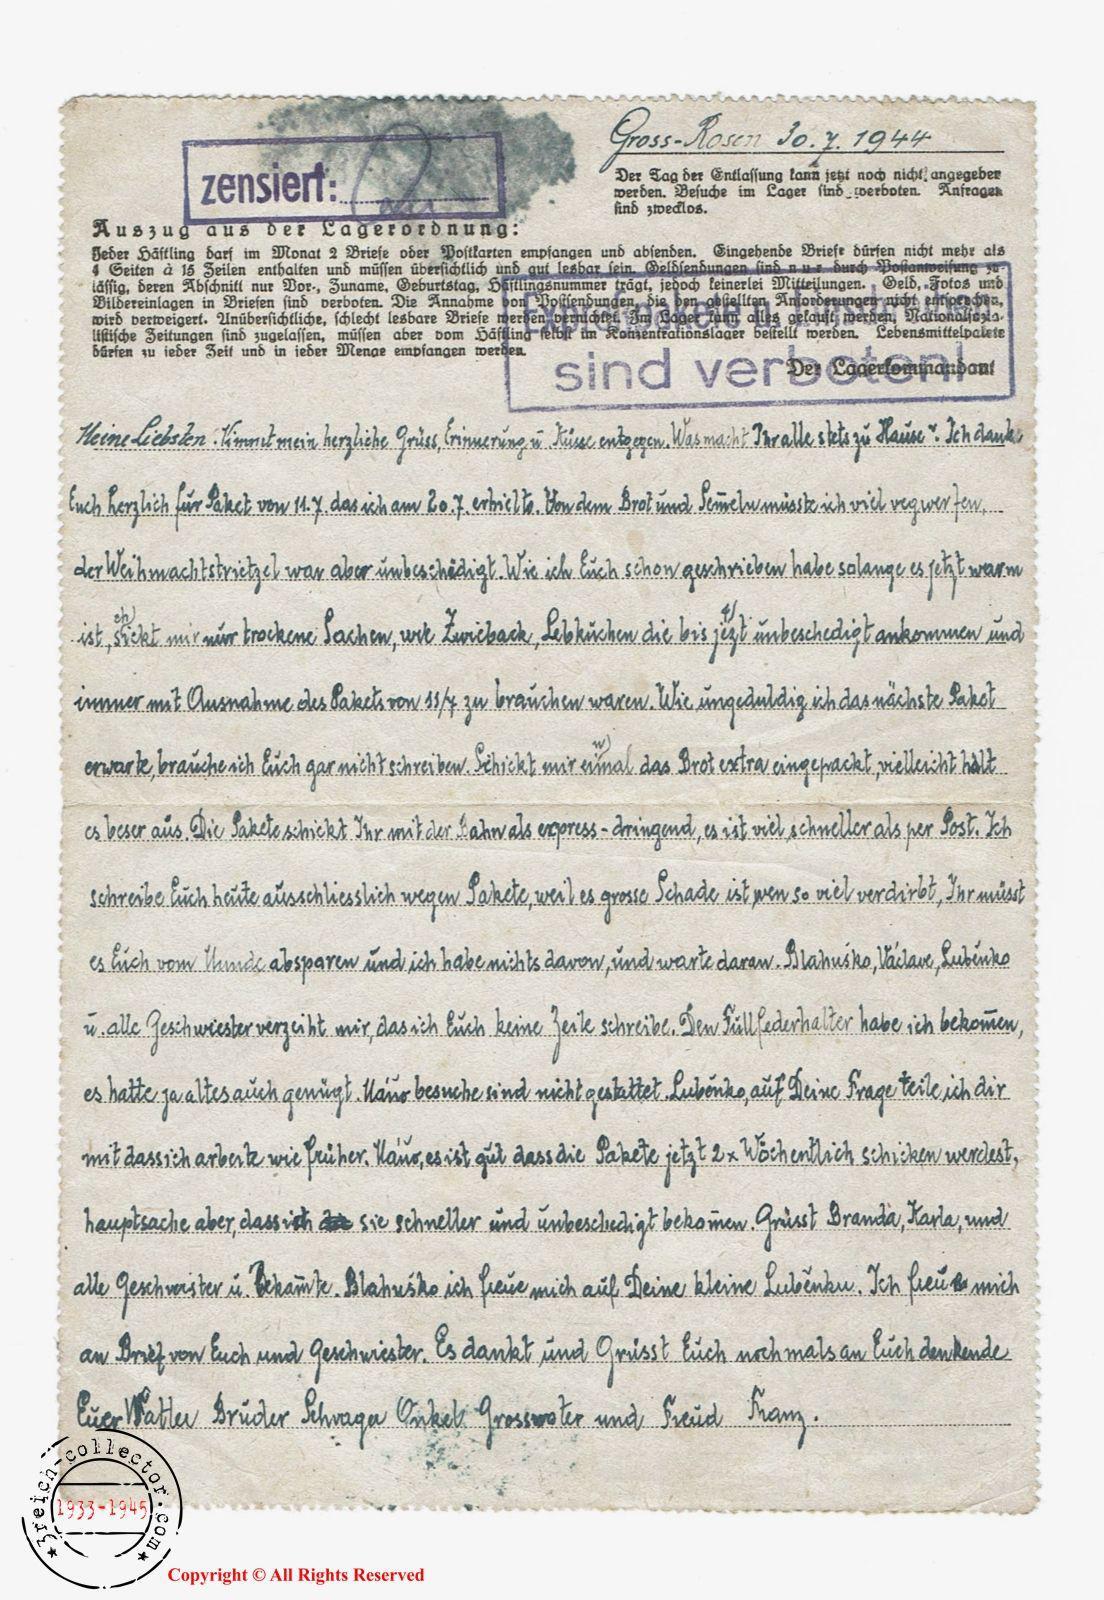 Gross-Rosen 30.7.1944
zensiert:
Der Tag der Entlassung kann jetzt noch nicht angegeben
werden. Besuche im Lager sind verboten. Anfragen
sind zwecklos.
Auszug aus der Lagerordnung:
Jeder Häftling darf im Monat 2 Briefe oder Postkarten empfangen und absenden. Eingehende Briefe dürfen nicht mehr als
4 Seiten à 15 Zeilen enthalten und müssen übersichtlich und gut lesbar sein. Geldsendungen sind nur durch Postanweisung zu-
lässig, deren Abschnitt nur Vor-, Zuname, Geburtstag, Häftlingsnummer trägt, jedoch keinerlei Mitteilungen. Geld, Fotos und
Bildereinlagen in Briefen sind verboten. Die Annahme von Postsendungen, die den gestellten Anforderungen nicht entsprechen,
wird verweigert. Unübersichtliche, schlecht lesbare Briefe werden vernichtet. Im Lager kann alles gekauft werden. Nationalsozia-
listische Zeitungen sind zugelassen, müssen aber vom Häftling selbst im Konzentrationslager bestellt werden. Lebensmittelpakete
dürfen zu jeder Zeit und in jeder Menge empfangen werden.
Der Lagerkommandant
sind verboten!
Meine Liebsten. Nimmt mein herzliche Grüss, Erinnerung u. Küsse entgegen. Was macht Ihr alle stets zu Hause? Ich dank
Euch herzlich für Paket von 11.7. das ich am 20.7. erhielte. Von dem Brot und Semeln müsste ich viel vegwerfen,
der Weihmachtstrietzel war aber unbeschädigt. Wie ich Euch schon geschrieben habe solange es jetzt warm
ist, schickt mir nur trockene Sachen, wie Zwieback, Lebkuchen die bis jetzt unbeschedigt ankommen und
immer mit Ausnahme des Pakets von 11/7 zu brauchen waren. Wie ungeduldig ich das nächste Paket
erwarte, brauche ich Euch gar nicht schreiben. Schickt mir einmal das Brot extra eingepackt, vielleicht hält
es beser aus. Die Pakete schickt Ihr mit der Bahn als express-dringend, es ist viel schneller als per Post. Ich
schreibe Euch heute ausschliesslich wegen Pakete, weil es grosse Schade ist, wen so viel verdirbt, Ihr müsst
es Euch vom Munde absparen und ich habe nichts davon, und warte daran. Blahuško, Václave, Lubénko
u. alle Geschwiester verzeiht mir, das ich Euch keine Zeile schreibe. Den Füllfederhalter habe ich bekom̄en,
es hatte ja altes auch genügt. besuche sind nicht gestattet. Lubénko, auf Deine Frage teile ich dir
mit dass ich arbeite wie früher. es ist gut dass die Pakete jetzt 2x Wöchentlich schicken werdest,
hauptsache aber, dass ich sie schneller und unbeschedigt bekom̄en. Grüsst Branda, Karla, und
alle Geschwister u. Bekam̄te. Blahuško ich freue mich auf Deine kleine Lubénku. Ich freu mich
an Brief von Euch und Geschwiester. Es dankt und Grüsst Euch nochmals an Euch denkende
Euer Vatter Bruder Schvager Onkel Grossvater und Freud Franz.
3reich-collector.com
1933-1945
Copyright © All Rights Reserved